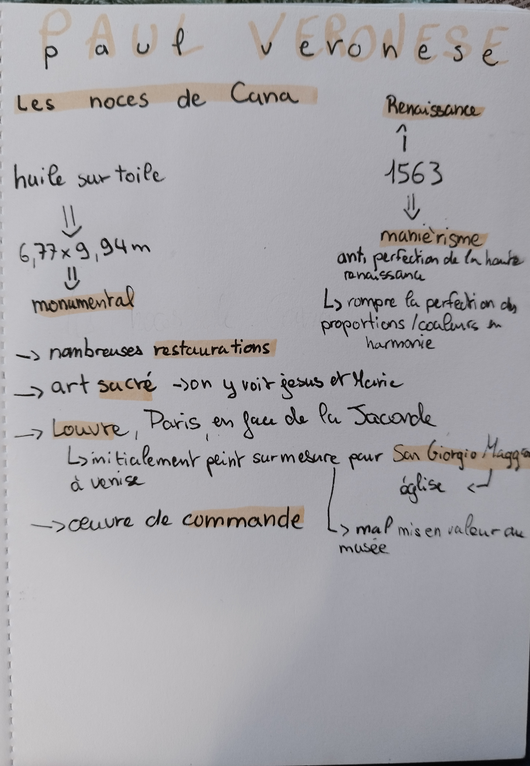 PAUL VERONESE
paul veronese
Les noces de Cana
Renaissance
1563
huile sur toile
6,77 x 9,94m
monumental
maniérisme
anti perfection de la haute
renaissance
rompre la perfection des
proportions/couleurs en
harmonie
nombreuses restaurations
art sacré → on y voit jesus et Marie
Louvre, Paris, en face de la Joconde
initialement peint sur mesure pour San Giorgio
à venise
église
œuvre de commande
mal mis en valeur au
musée